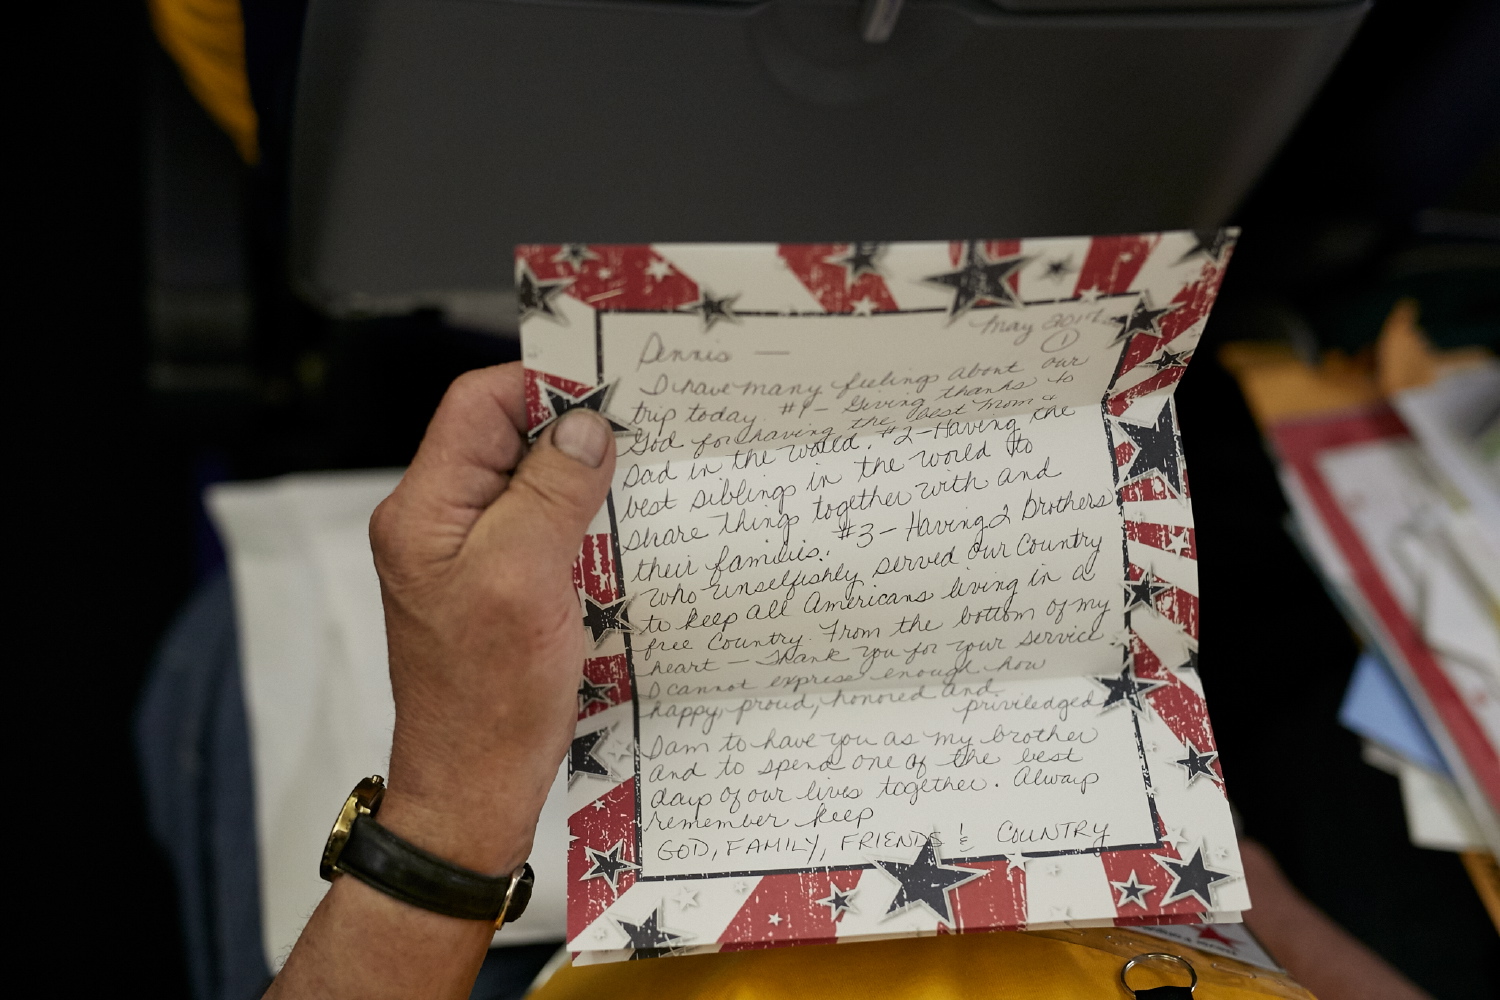 May 2017
①
Dennis —
I have many feelings about our
trip today. #1 – Giving thanks to
God for having the best Mom &
Dad in the world. #2 – Having the
best siblings in the world to
share things together with and
their families. #3 – Having 2 brothers
who unselfishly served our Country
to keep all Americans living in a
free Country. From the bottom of my
heart — Thank you for your service
I cannot express enough how
happy, proud, honored and
priviledged
I am to have you as my brother
and to spend one of the best
days of our lives together. Always
remember keep
GOD, FAMILY, FRIENDS & COUNTRY